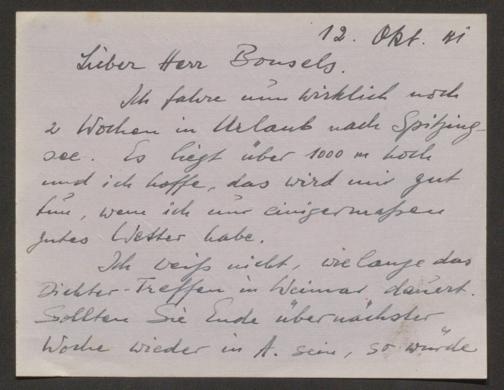 12. Okt. 41
Lieber Herr Bonsels.
Ich fahre nun wirklich noch
2 Wochen in Urlaub nach Spitzing-
see. Es liegt über 1000 m hoch
und ich hoffe, das wird mir gut
tun, wenn ich nur einigermaßen
gutes Wetter habe.
Ich weiß nicht, wie lange das
Dichter-Treffen in Weimar dauert.
Sollten Sie Ende übernächster
Woche wieder in A. sein, so würde